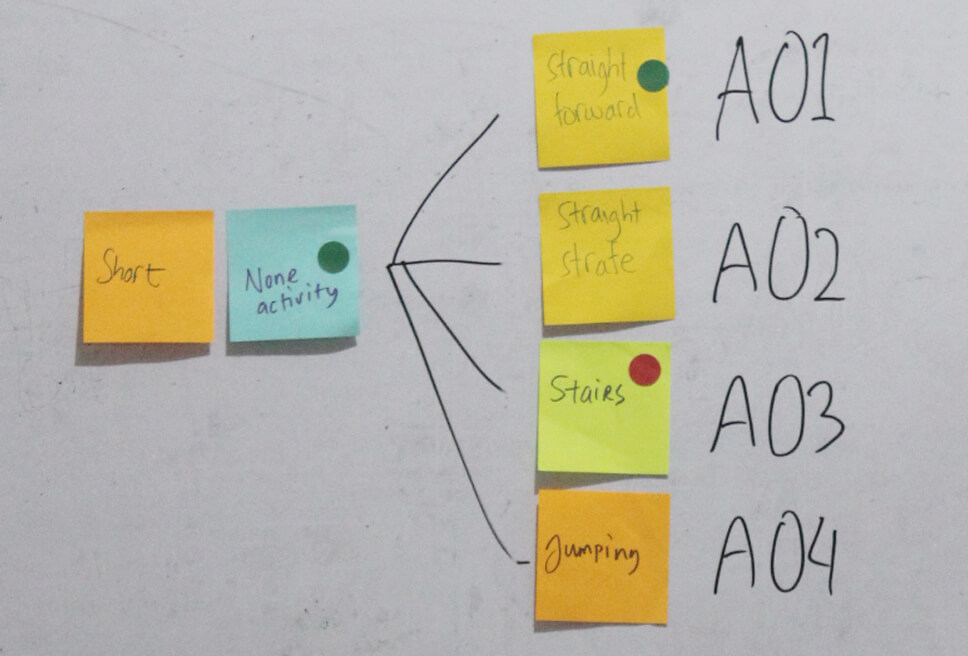 Short
None
activity
Straight
forward
A01
Straight
strafe
A02
Stairs
A03
Jumping
A04